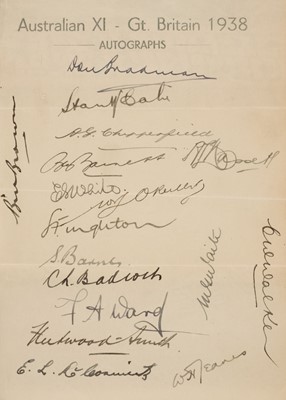 Australian XI - Gt. Britain 1938
AUTOGRAPHS
Don Bradman
Stan McCabe
A.G. Chipperfield
B.A. Barnett
E.S. White
W.J. O'Reilly
J. Fingleton
S. Barnes
C.L. Badcock
F A Ward
Fleetwood Smith
E. L. McCormick
Bill Brown
M.G. Waite
C.W. Walker
W H Jeanes